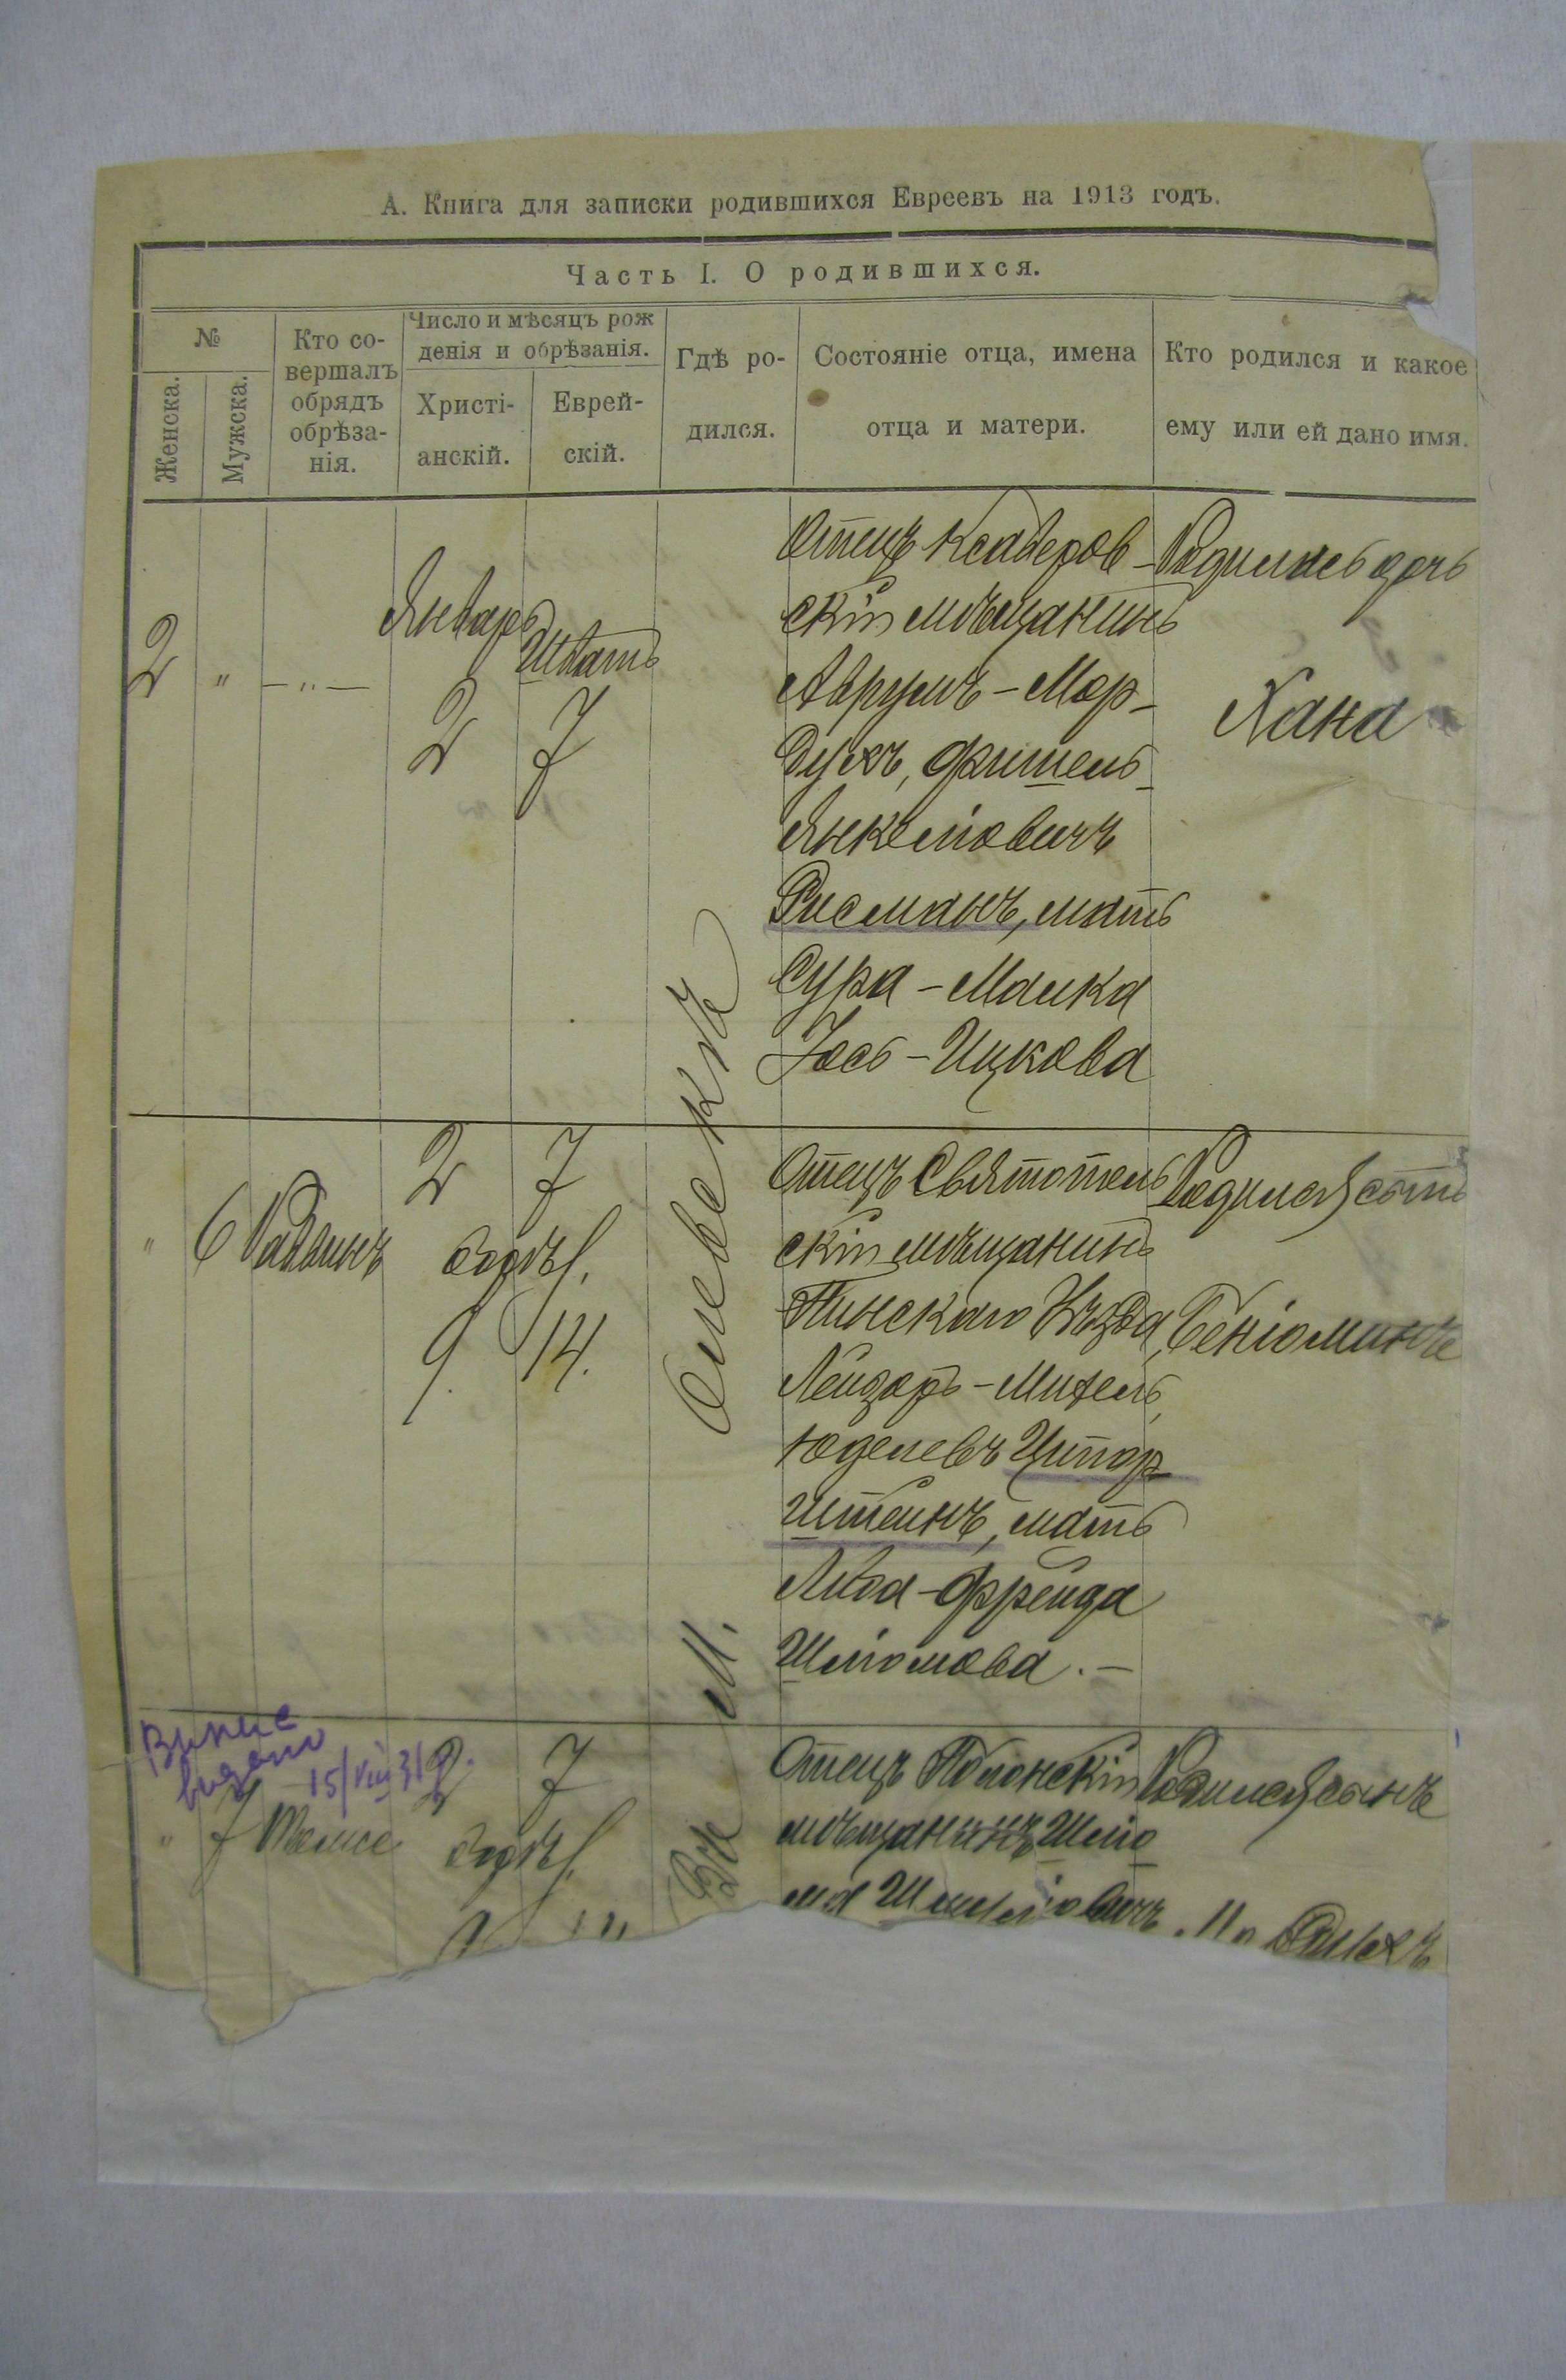 А. Книга для записки родившихся Евреевъ на 1913 годъ.
Часть I. О родившихся.
№
Женска.
Мужска.
Кто со-
вершалъ
обрядъ
обрѣза-
нія.
Число и мѣсяцъ рож
денія и обрѣзанія.
Христі-
анскій.
Еврей-
скій.
Гдѣ ро-
дился.
Состояніе отца, имена
отца и матери.
Кто родился и какое
ему или ей дано имя.
2 " — " —
Январь
2
Шватъ
7
Въ М. Олевскѣ
Отецъ Ксаверов-
скій мѣщанинъ
Аврумъ - Мор-
духъ, Фишель-
Янкеліовичъ
Фисманъ, мать
Сура - Малка
Іось - Ицкова
Родилась дочь
Хана
" 6 Раввинъ
2 7
обрѣ.
9. 14.
Отецъ Святополь
скій мѣщанинъ
Пинскаго Уѣзда,
Лейзоръ - Михель,
Юделевъ Ципор-
штейнъ, мать
Либа - Фрейда
Шліомова. —
Родился сынъ
Беніоминъ
Випис
видано
15/VIII 31
" 7
2 7
обрѣ.
Отецъ Полонскій
мѣщанинъ Шліо
ма
Родился сынъ